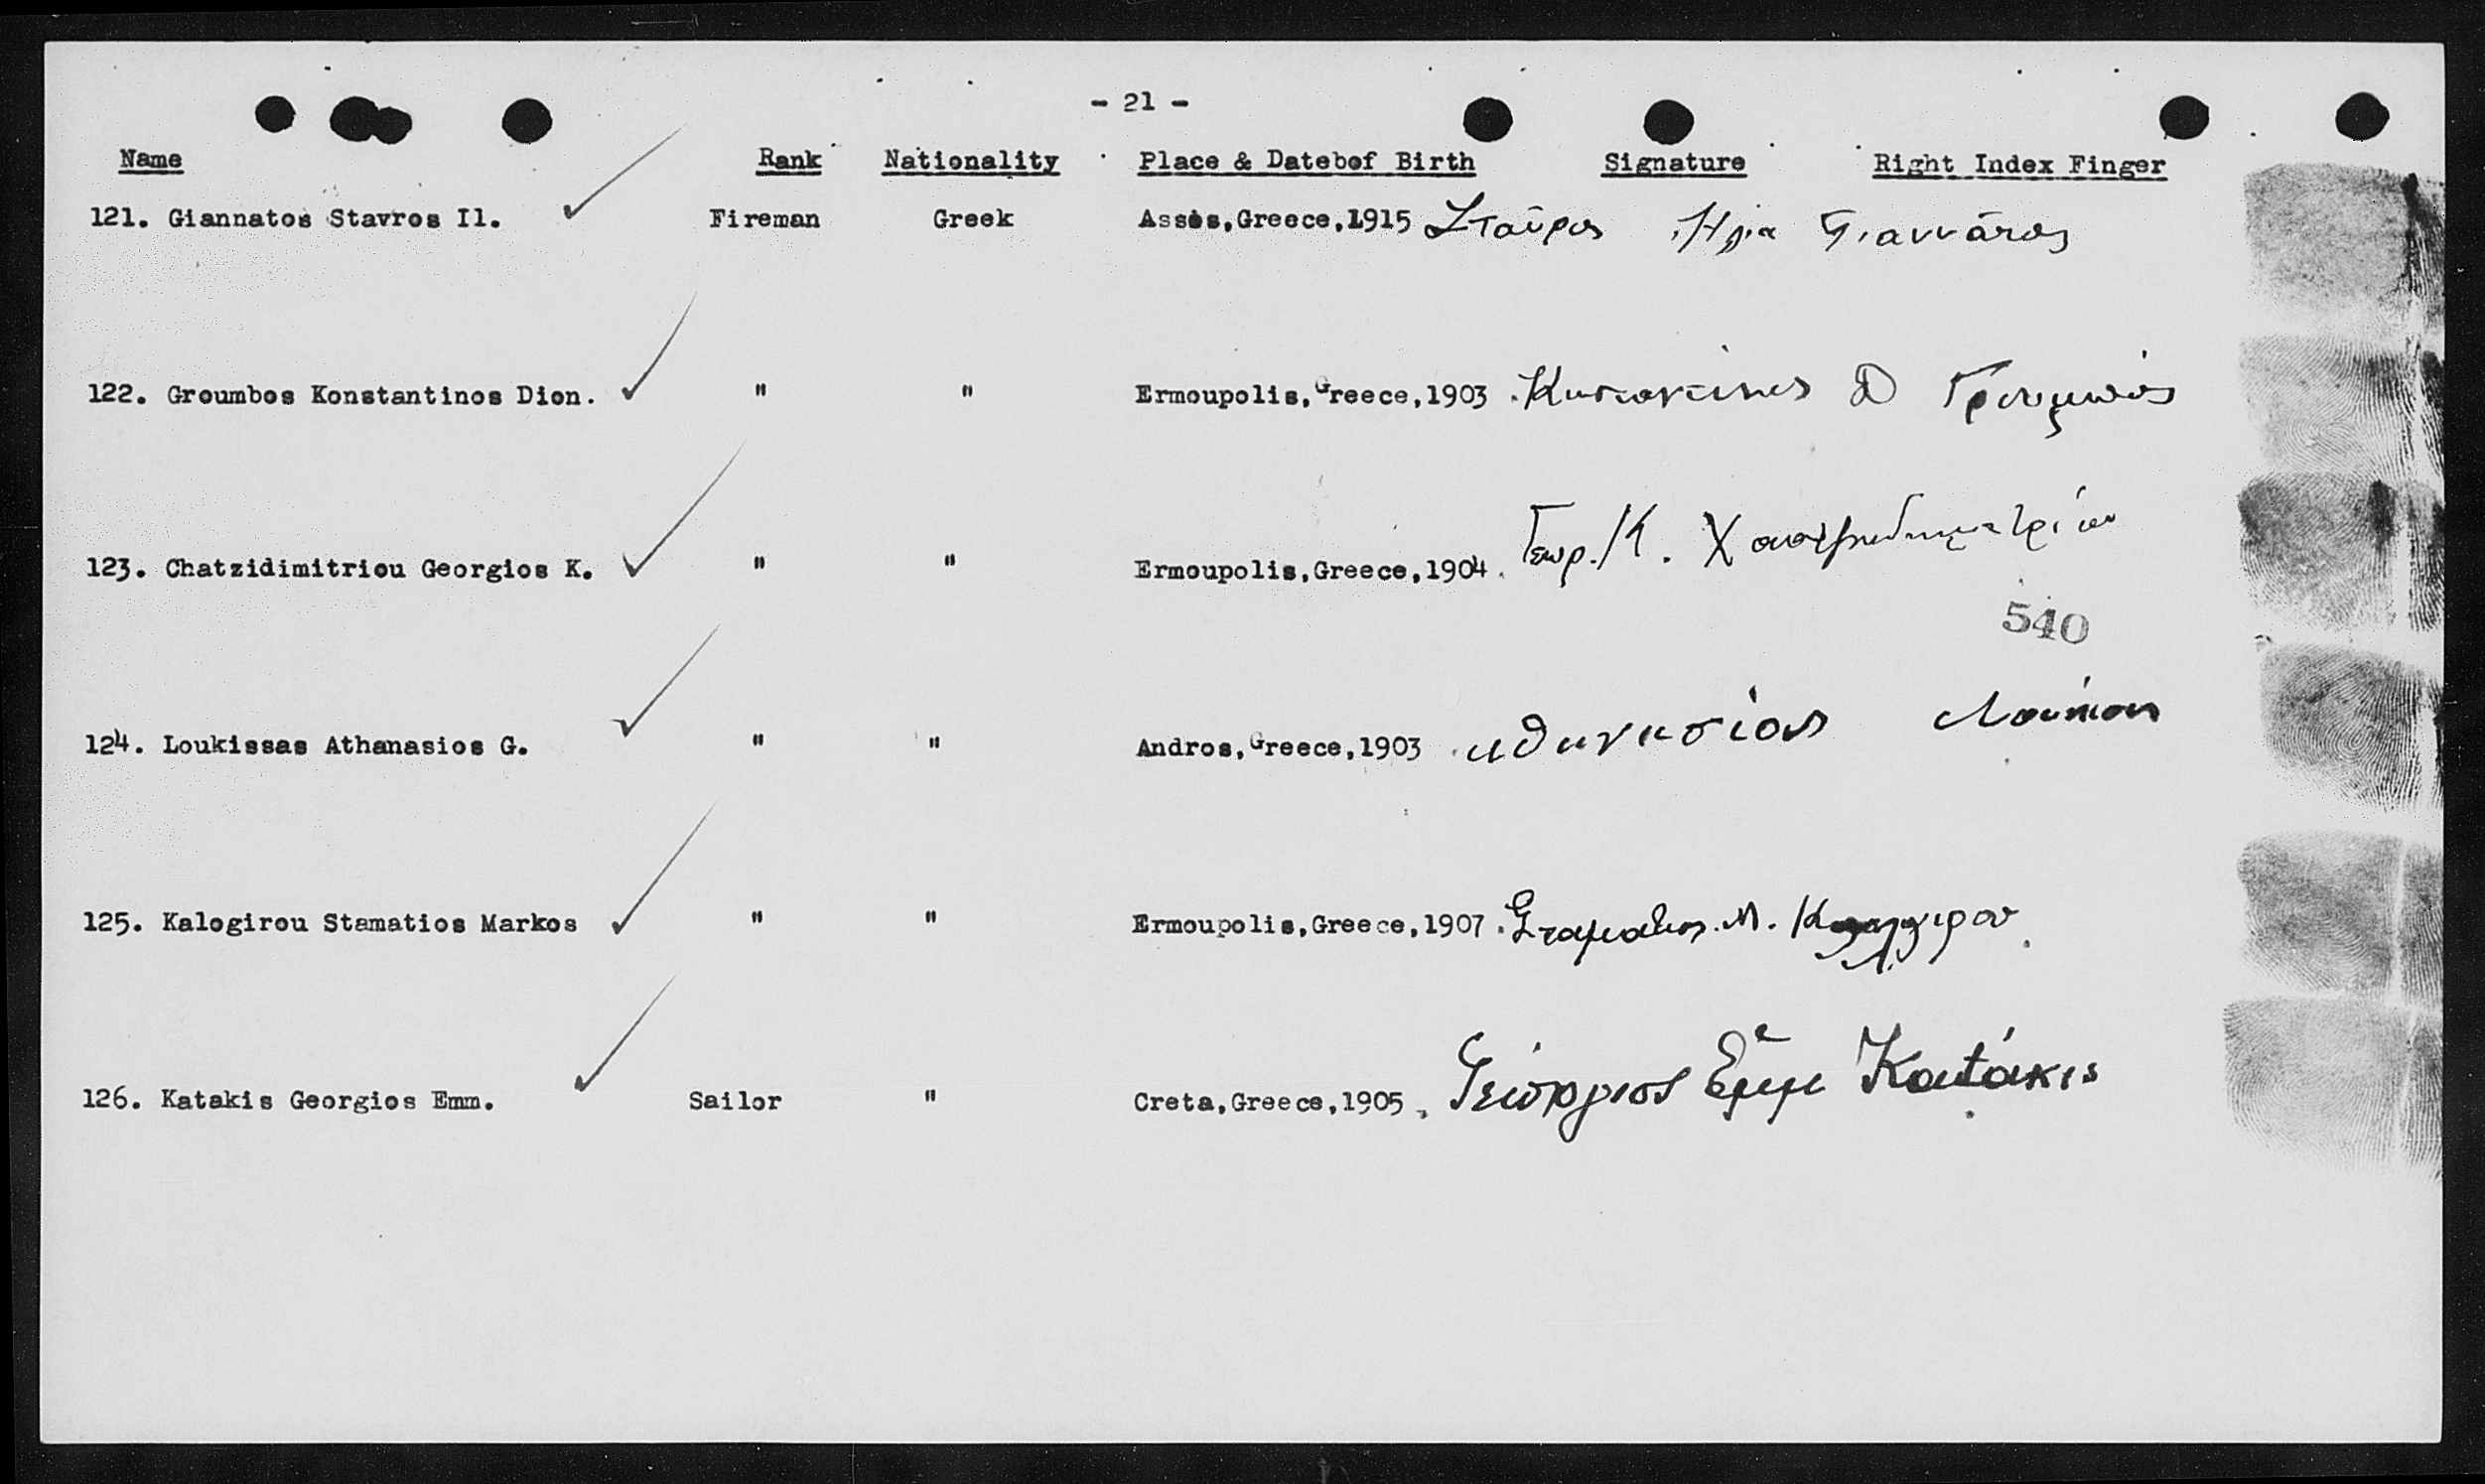 - 21 -
Name Rank Nationality Place & Datebof Birth Signature Right Index Finger
121. Giannatos Stavros Il. Fireman Greek Assos,Greece,1915 Σταῦρος Ηλία Γιαννᾶτος
122. Groumbos Konstantinos Dion. " " Ermoupolis,Greece,1903 . Κωσταντίνος Δ Γρουμπός
123. Chatzidimitriou Georgios K. " " Ermoupolis,Greece,1904. Γεωρ. Κ.
540
124. Loukissas Athanasios G. " " Andros,Greece,1903 . αθανασίος
125. Kalogirou Stamatios Markos " " Ermoupolis,Greece,1907 . Σταματιος. Μ. Καλογιρου.
126. Katakis Georgios Emm. Sailor " Creta,Greece,1905 , Γεώργιος Εμμ Κατάκις